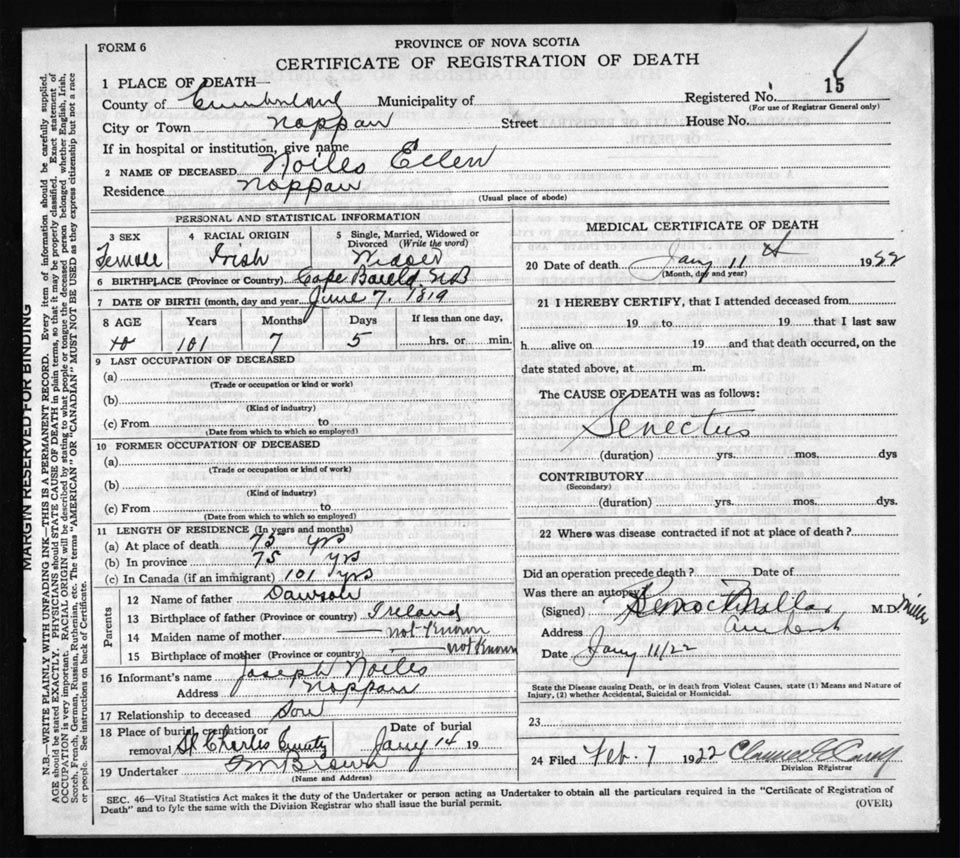 FORM 6
PROVINCE OF NOVA SCOTIA
CERTIFICATE OF REGISTRATION OF DEATH
1 PLACE OF DEATH—
County of Cumberland Municipality of
Registered No. 15
(For use of Registrar General only)
City or Town Nappan Street House No.
If in hospital or institution, give name
2 NAME OF DECEASED Noiles Ellen
Residence Nappan
(Usual place of abode)
PERSONAL AND STATISTICAL INFORMATION
3 SEX
Female
4 RACIAL ORIGIN
Irish
5 Single, Married, Widowed or Divorced (Write the word)
6 BIRTHPLACE (Province or Country) Cape NB
7 DATE OF BIRTH (month, day and year) June 7, 1819
8 AGE Years Months Days If less than one day,
101 7 5 hrs. or min.
9 LAST OCCUPATION OF DECEASED
(a)
(Trade or occupation or kind of work)
(b)
(Kind of industry)
(c) From to
(Date from which to which so employed)
10 FORMER OCCUPATION OF DECEASED
(a)
(Trade or occupation or kind of work)
(b)
(Kind of industry)
(c) From to
(Date from which to which so employed)
11 LENGTH OF RESIDENCE (In years and months)
(a) At place of death 75 yrs
(b) In province 75 yrs
(c) In Canada (if an immigrant) 101 yrs
Parents
12 Name of father Dawson
13 Birthplace of father (Province or country) Ireland
14 Maiden name of mother — not known
15 Birthplace of mother (Province or country) — not known
16 Informant's name Joseph Noiles
Address Nappan
17 Relationship to deceased Son
18 Place of burial, cremation or removal St Charles County
Date of burial Jany 14 19
19 Undertaker Brown
(Name and Address)
MEDICAL CERTIFICATE OF DEATH
20 Date of death Jany 11 1922
(Month, day and year)
21 I HEREBY CERTIFY, that I attended deceased from
19 to 19 that I last saw
h alive on 19 and that death occurred, on the
date stated above, at m.
The CAUSE OF DEATH was as follows:
Senectus
(duration) yrs. mos. dys
CONTRIBUTORY
(Secondary)
(duration) yrs. mos. dys.
22 Where was disease contracted if not at place of death?
Did an operation precede death? Date of
Was there an autopsy
(Signed) M.D. Miller
Address Amherst
Date Jany 11/22
State the Disease causing Death, or in death from Violent Causes, state (1) Means and Nature of
Injury, (2) whether Accidental, Suicidal or Homicidal.
23
24 Filed Feb. 7 1922
Division Registrar
SEC. 46—Vital Statistics Act makes it the duty of the Undertaker or person acting as Undertaker to obtain all the particulars required in the "Certificate of Registration of
Death" and to fyle the same with the Division Registrar who shall issue the burial permit.
(OVER)
MARGIN RESERVED FOR BINDING
N.B.—WRITE PLAINLY WITH UNFADING INK—THIS IS A PERMANENT RECORD. Every item of information should be carefully supplied.
AGE should be stated EXACTLY. PHYSICIANS should STATE CAUSE OF DEATH in plain terms, so that it may be properly classified. Exact statement of
OCCUPATION is very important. RACIAL ORIGIN will be described by stating to what people or tongue the deceased person belonged, whether English, Irish,
Scotch, French, German, Russian, Ruthenian, etc. The terms "AMERICAN" OR "CANADIAN" MUST NOT BE USED as they express citizenship but not a race
or people. See instructions on back of Certificate.